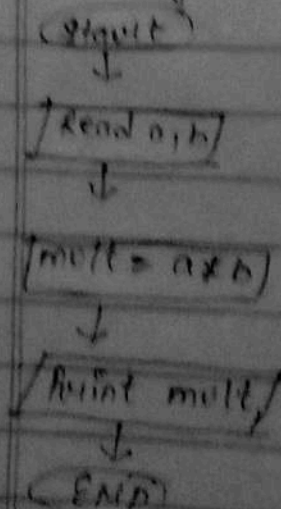 Read a, b
mult = a * b
Print mult,
END